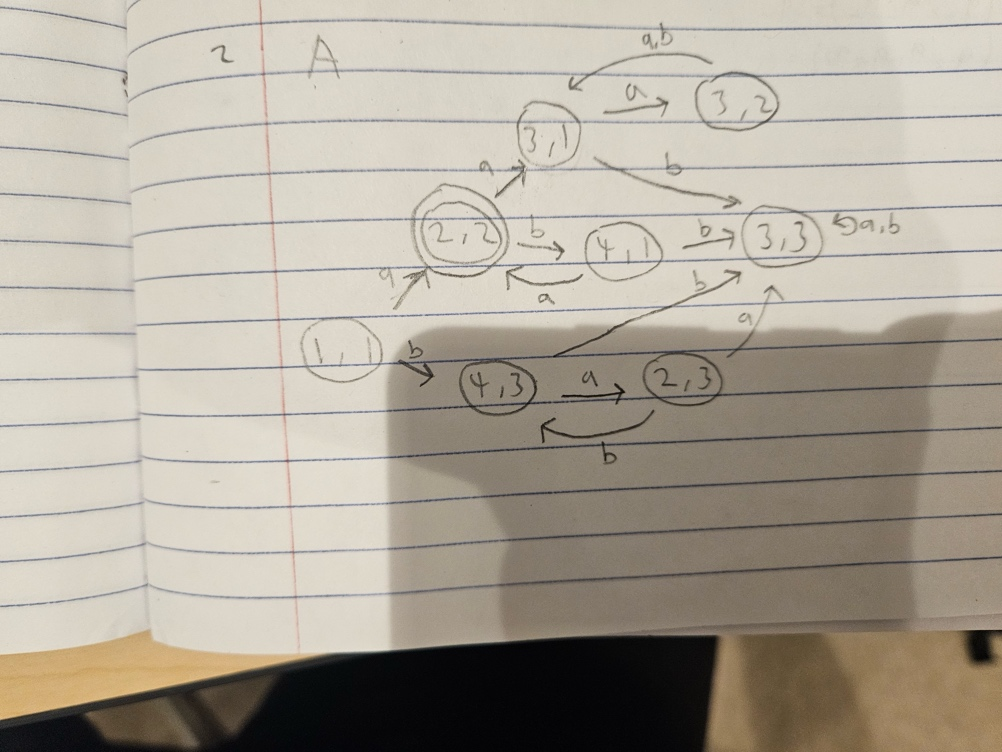 2 A
a,b
3,1 a 3,2
a b
2,2 b 4,1 b 3,3 a,b
a a b
1,1 b a
4,3 a 2,3
b